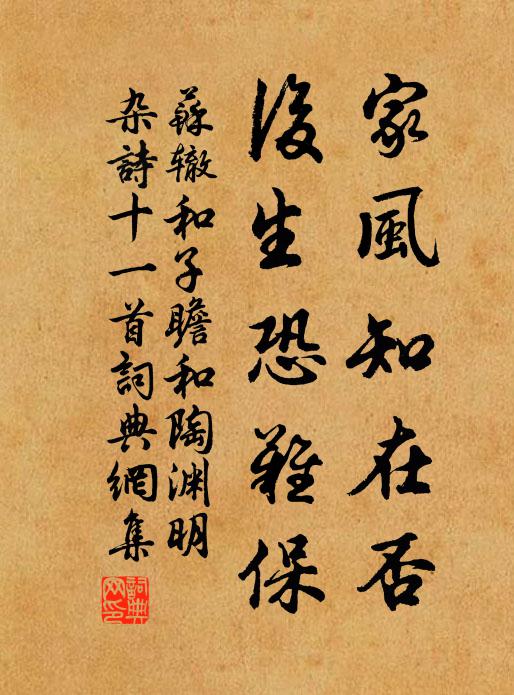 家風知在否
後生恐難保
蘇辙和子瞻和陶渊明
杂詩十一首詞典網集
詞典網印